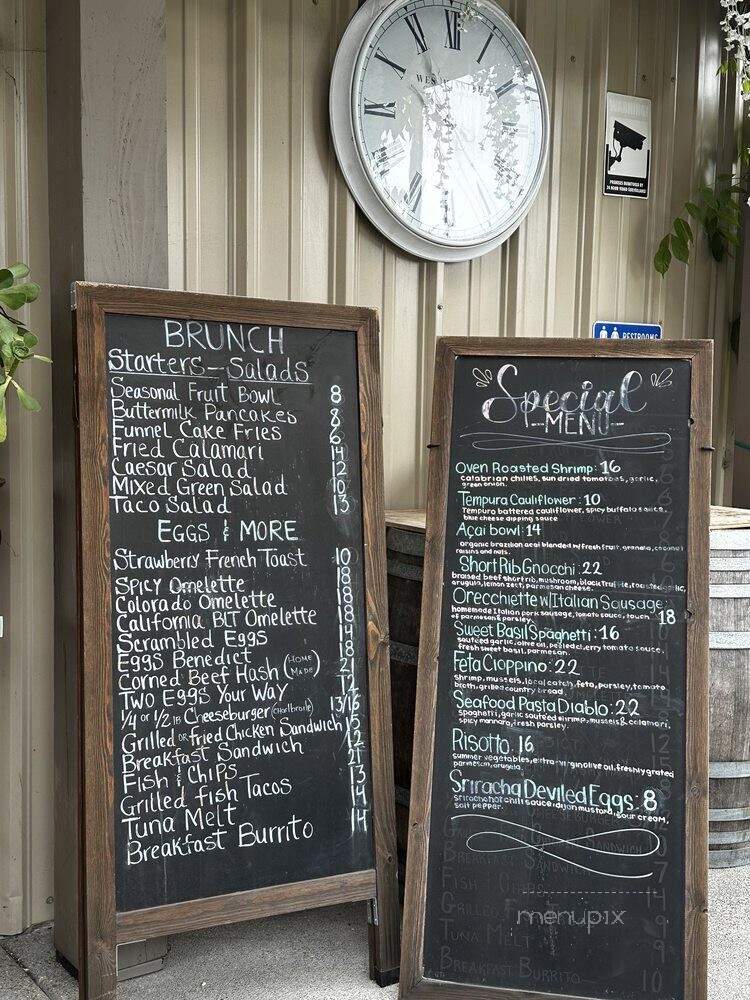 XII
BRUNCH
Starters – Salads
Seasonal Fruit Bowl 8
Buttermilk Pancakes 8
Funnel Cake Fries 6
Fried Calamari 14
Caesar Salad 12
Mixed Green Salad 10
Taco Salad 13
EGGS & MORE
Strawberry French Toast 10
SPICY Omelette 18
Colorado Omelette 18
California BLT Omelette 18
Scrambled EGGS 14
EGGS Benedict 18
Corned Beef Hash (HOME MADE) 21
TWO EGGS YOUR WAY
1/4 or 1/2 lb Cheeseburger (charbroile) 13/16
Grilled or fried Chicken Sandwich 15
Breakfast Sandwich 12
Fish & Chips 21
Grilled fish Tacos 13
Tuna Melt 14
Breakfast Burrito 14
PREMISES MONITORED BY
24 HOUR VIDEO SURVEILLANCE
RESTROOM
Special
MENU
Oven Roasted Shrimp: 16
calabrian chilies, sun dried tomatoes, garlic,
green onion.
Tempura Cauliflower: 10
Tempura battered cauliflower, spicy buffalo sauce,
blue cheese dipping sauce
Açai bowl: 14
organic brazilian acai blended w/fresh fruit, granola, coconut
raisins and nuts.
Short Rib Gnocchi: 22
braised beef short rib, mushroom, black truffle, roasted garlic,
arugula, lemon zest, parmesan cheese.
Orecchiette w/Italian Sausage: 18
homemade Italian pork sausage, tomato sauce, touch
of parmesan & parsley.
Sweet Basil Spaghetti: 16
sauteed garlic, olive oil, peeled cherry tomato sauce,
fresh sweet basil, parmesan.
Feta Cioppino: 22
shrimp, mussels, local catch, feta, parsley, tomato
broth, grilled country bread
Seafood Pasta Diablo: 22
spaghetti, garlic sauteed shrimp, mussels & calamari,
spicy marinara, fresh parsley.
Risotto: 16
summer vegetables, extra-virgin olive oil, freshly grated
parmesan, arugula.
Sriracha Devilled Eggs: 8
sriracha hot chili sauce, dijon mustard, sour cream,
salt pepper.
Breakfast Sandwich
FISH & CHIPS
TUNA MELT
BREAKFAST BURRITO 10
menupix